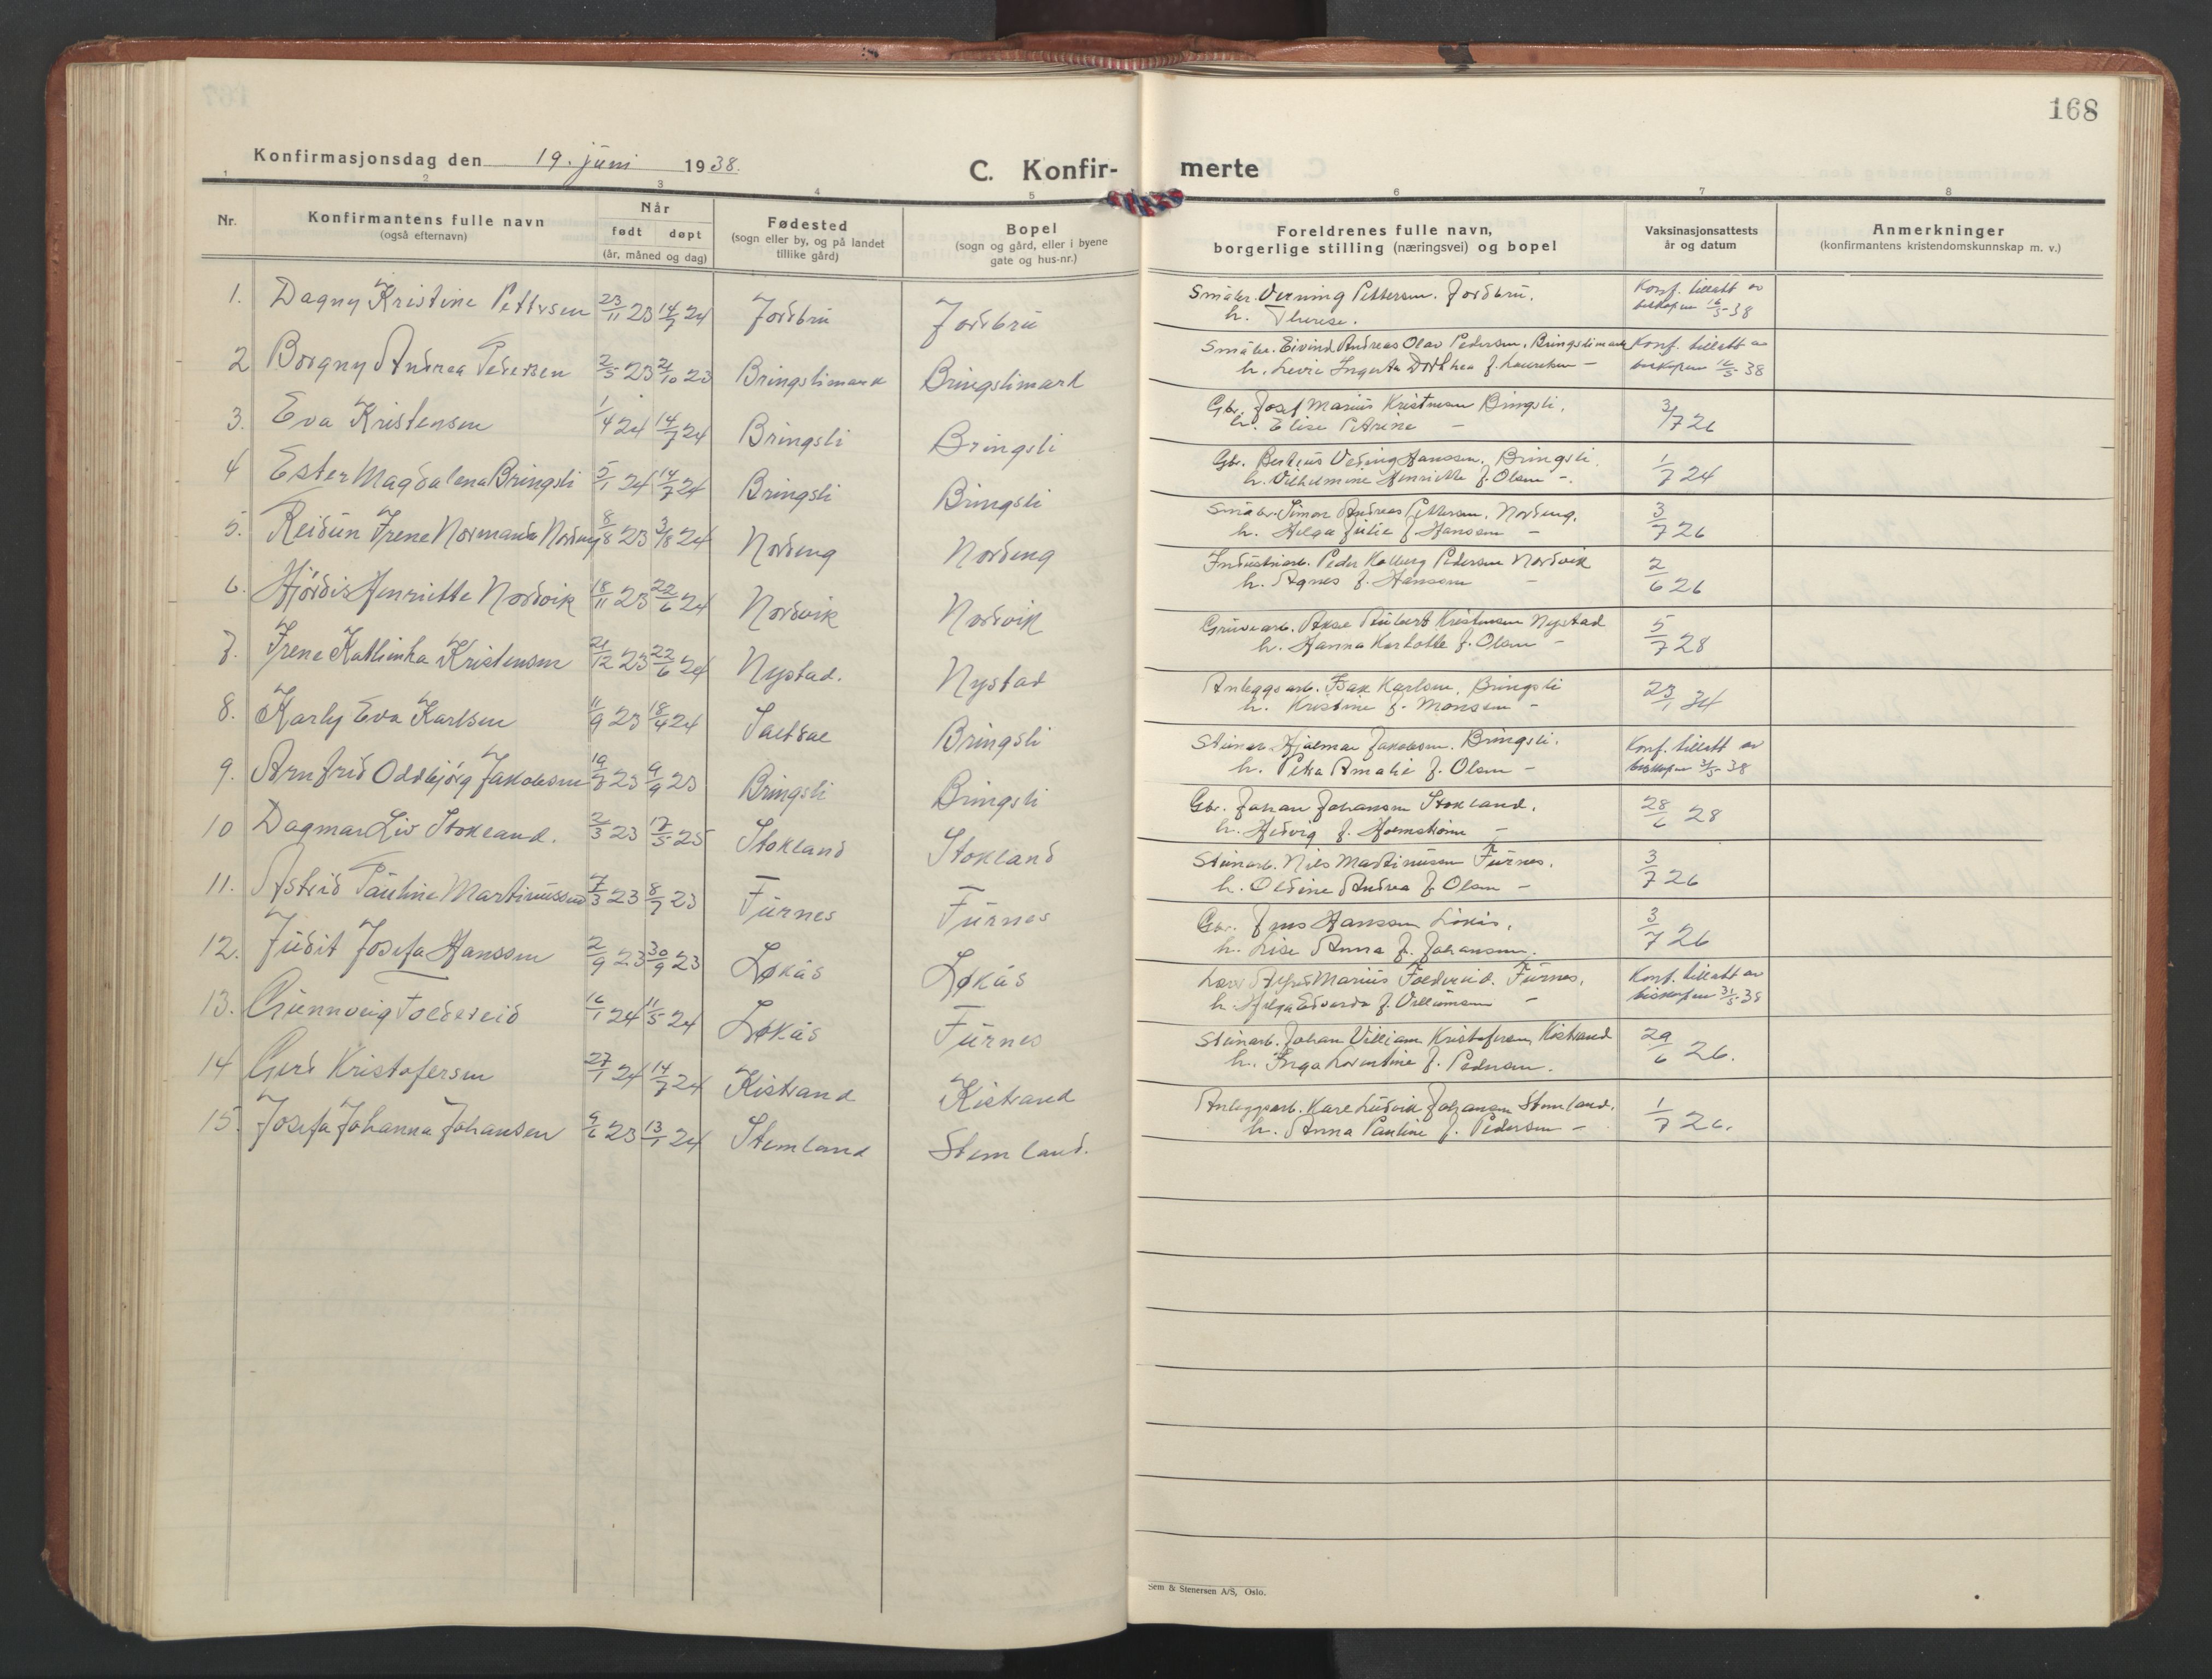 168
Konfirmasjonsdag den 19. juni 1938.
C. Konfir- merte
1 2 3 4 5 6 7 8
Nr.
Konfirmantens fulle navn
(også efternavn)
Når
født døpt
(år, måned og dag)
Fødested
(sogn eller by, og på landet
tillike gård)
Bopel
(sogn og gård, eller i byene
gate og hus-nr.)
Foreldrenes fulle navn,
borgerlige stilling (næringsvei) og bopel
Vaksinasjonsattests
år og datum
Anmerkninger
(konfirmantens kristendomskunnskap m. v.)
1. Dagny Kristine Pettersen 23/11 23 14/7 24 Jordbru Jordbru
Småbr. Verning Pettersen. Jordbru. Konf. tillatt av
h. Therese. biskopen 16/5 38
2 Borgny Andrea Pedersen 2/5 23 21/10 23 Bringslimark Bringslimark
Småbr. Eivind Andreas Olav Pedersen, Bringslimark Konf. tillatt av
h. Ingerta Dorthea f. Lauritsen – biskopen 16/5 38
3. Eva Kristensen 1/4 24 14/7 24 Bringsli Bringsli
Gbr. Josef Marius Kristensen Bringsli. 3/7 26
h. Elise Petrine –
4 Ester Magdalena Bringsli 5/1 24 14/7 24 Bringsli Bringsli
Gbr. Berteus Hanssen, Bringsli. 1/7 24
h. Vilhelmine Henriette f. Olsen –.
5. Reidun Irene Normanda Nordeng 8/8 23 3/8 24 Nordeng Nordeng
Småbr. Simon Andreas Pettersen, Nordeng. 3/7 26
h. Helga Julie f. Hanssen –
6. Hjørdis Henriette Nordvik 18/11 23 22/6 24 Nordvik Nordvik
Industriarb. Peder Kolberg Pedersen Nordvik 2/6 26
h. Agnes f. Hanssen –
7. Irene Kathinka Kristensen 21/12 23 22/6 24 Nystad. Nystad
Gruvearb. Aksel Kristensen Nystad 5/7 28
h. Hanna Karlotte f. Olsen –
8. Karly Eva Karlsen 11/9 23 18/4 24 Saltdal Bringsli
Anleggsarb. Isak Karlsen, Bringsli 23/1 34
h. Kristine f. Monssen –
9. Arnfrid Oddbjørg Jakobsen 19/7 23 9/9 23 Bringsli Bringsli
Steinarb. Hjalmar Jakobsen. Bringsli. Konf. tillatt av
h. Petra Amalie f. Olsen – biskopen 31/5 38
10 Dagmar Liv Stokland. 2/3 23 17/5 25 Stokland Stokland
Gbr. Johan Johansen Stokland. 28/6 28
h. Hedvig f. Holmstrøm –
11. Astrid Pauline Martinussen 7/3 23 8/7 23 Furnes Furnes
Steinarb. Nils Martinussen Furnes. 3/7 26
h. Oldine Andrea f. Olsen –
12. Judit Josefa Hanssen 2/9 23 30/9 23 Løkås Løkås
Gbr. Jens Hanssen Løkås. 3/7 26
h. Lise Anna f. Johansen.
13. Gunnveig Foldereid 16/1 24 11/5 24 Løkås Furnes
Alfred Marius Foldereid. Furnes. Konf. tillatt av
h. Helga Edvarda f. Villumsen – biskopen 31/5 38
14 Gerd Kristofersen 27/1 24 14/7 24 Kistrand Kistrand
Steinarb. Johan Villiam Kristofersen, Kistrand 29/6 26.
h. Inga Lorentine f. Pedersen.
15. Josefa Johanna Johansen 9/6 23 13/1 24 Stemland Stemland.
Anleggsarb. Karl Ludvik Johansen Stemland. 1/7 26.
h. Anna Pauline f. Pedersen –
Sem & Stenersen A/S, Oslo.